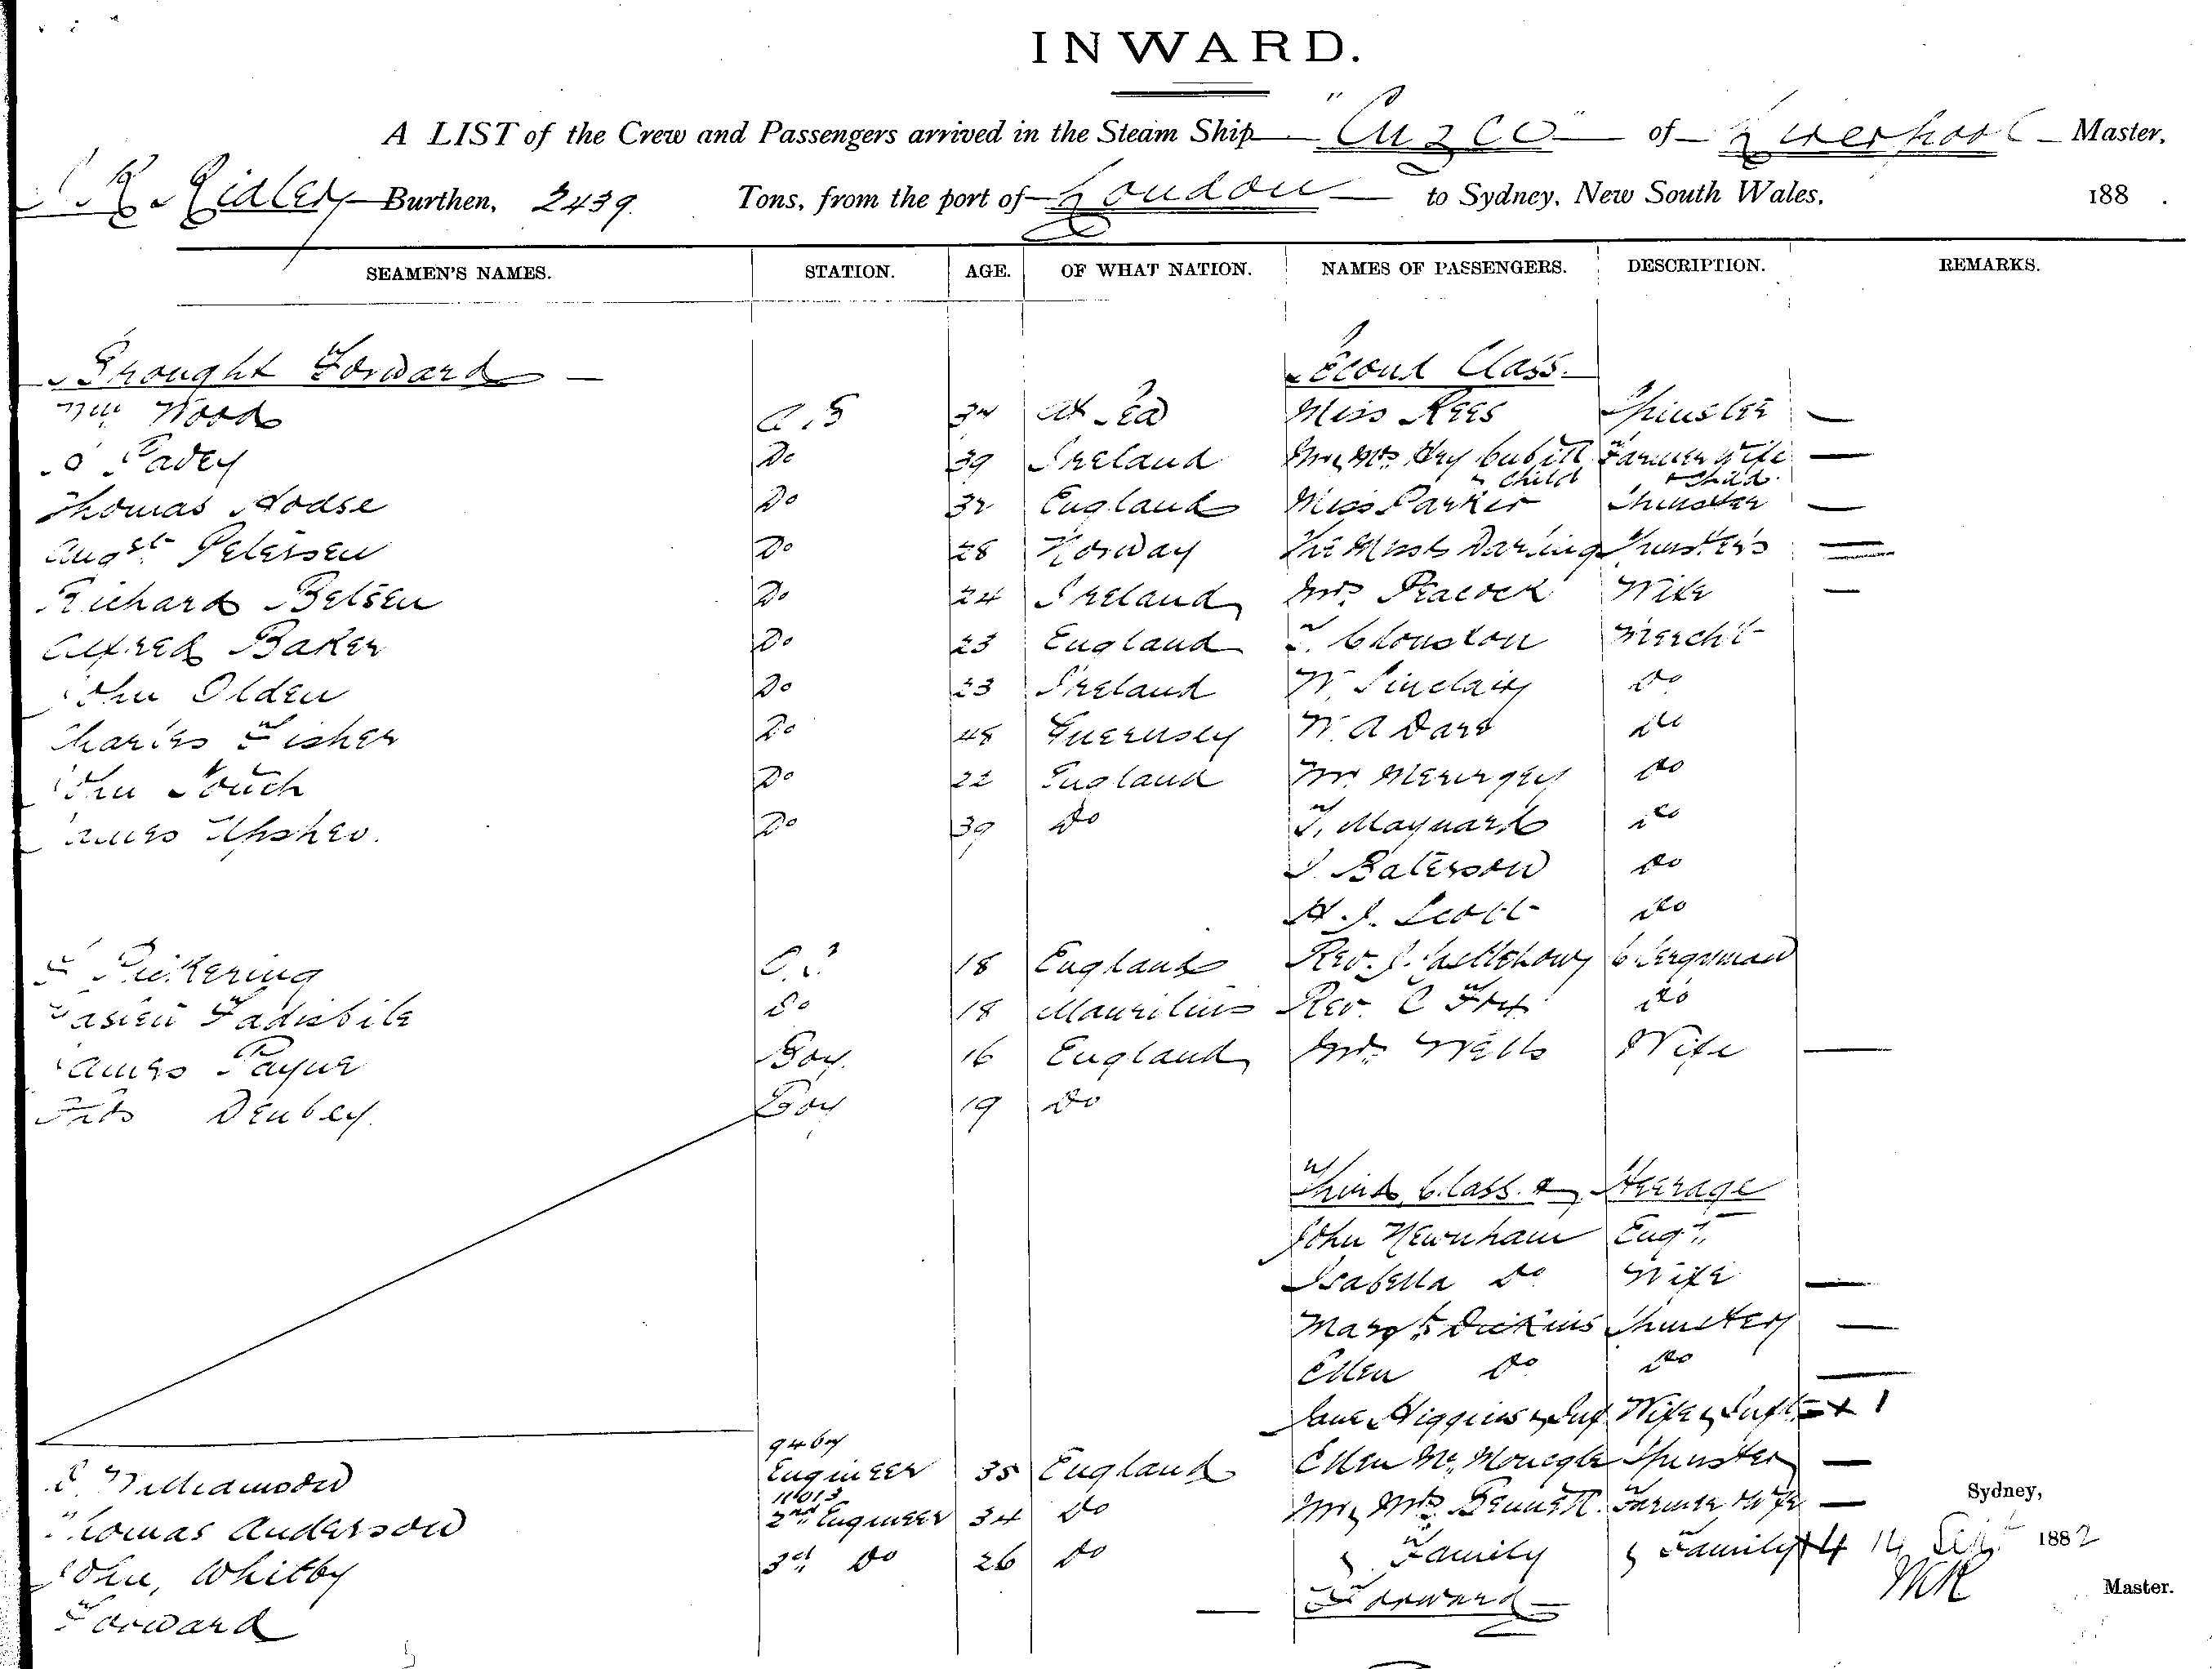 INWARD.
A LIST of the Crew and Passengers arrived in the Steam Ship "Cuzco" of Liverpool Master,
Ridley Burthen, 2439 Tons, from the port of London to Sydney, New South Wales, 188 .
SEAMEN'S NAMES. STATION. AGE. OF WHAT NATION. NAMES OF PASSENGERS. DESCRIPTION. REMARKS.
Brought Forward Second Class.
Wm Wood A.S 34 At Sea Miss Rees Spinster —
Pavey Do 39 Ireland Mr & Mrs Hry Cubitt Farmer wife —
& Child & Child
Thomas Hodse Do 32 England Miss Parker Spinster —
Augst Petersen Do 28 Norway The Misses Darling Spinsters =
Richard Betsen Do 24 Ireland Mrs Peacock Wife —
Alfred Baker Do 23 England T. Clouston Mercht
John Olden Do 23 Ireland W. Sinclair do
Charles Fisher Do 48 Guernsey W. A Dard do
John Couch Do 22 England Mr do
James Upshev. Do 39 Do T. Maynard do
J. Baterson do
H. J. Scott do
Pickering O.S 18 England Rev. J. Clergyman
Do 18 Mauritius Rev. C Fry do
James Payne Boy. 16 England Mrs Wells Wife —
Denbey. Boy 19 Do
Third Class & Steerage
John Newnham Engr.
Isabella Do Wife —
Margt Dickins Spinster —
Ellen Do Do —
Jane Higgins & Inf Wife & Inft = + 1
Williamson Engineer 35 England Ellen Mc Spinster —
Thomas Anderson 2nd Engineer 34 Do Mr & Mrs Bennett Farmer & Wife — Sydney,
John, Whitby 3rd Do 26 Do & Family & Family + 4 14 Sept 1882
Forward Forward Master.